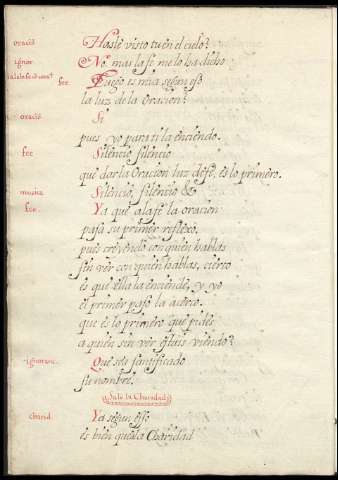 oració Haslè visto tu en el cielo?
ignor No. mas la fe me lo ha dicho
sale la fe
fee. Luego es mia segun esso
la luz de la Oracion?
oració Si
pues yo para ti la enciendo.
fee Silencio silencio
que dar la Oracion luz desse, es lo primero.
musica Silencio, silencio &
fee. Ya que a la fe la oracion
passa su primer reflexo,
pues creyendo con quien hablas
sin ver con quien hablas, cierto
es que ella la enciende, y yo
el primer passo la acerco.
que es lo primero que pides
a quien sin ver estais viendo?
ignoranc. Que sea santificado
su nombre.
Sale la Charidad
charid. Ya segun esso
es bien que la Charidad